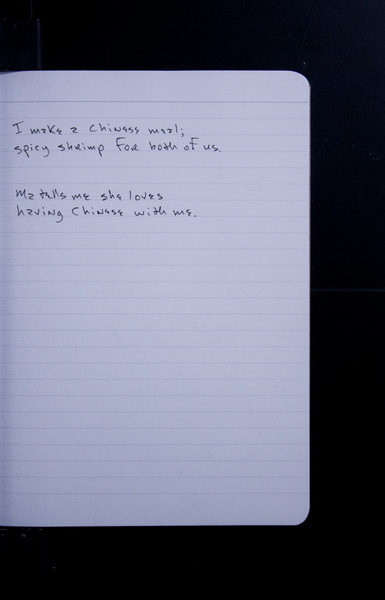 I make a Chinese meal;
spicy shrimp For both of us.
Ma tells me she loves
having Chinese with me.